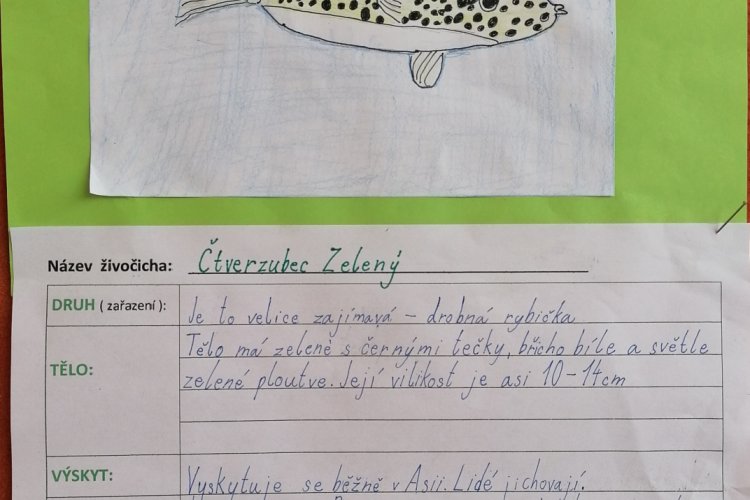 Název živočicha: Čtverzubec Zelený
DRUH ( zařazení ): Je to velice zajímavá - drobná rybička
Tělo má zelené s černými tečky, břicho bíle a světle
TĚLO: zelené ploutve. Její vilikost je asi 10-14cm
VÝSKYT: Vyskytuje se běžně v Asii. Lidé jichovají.